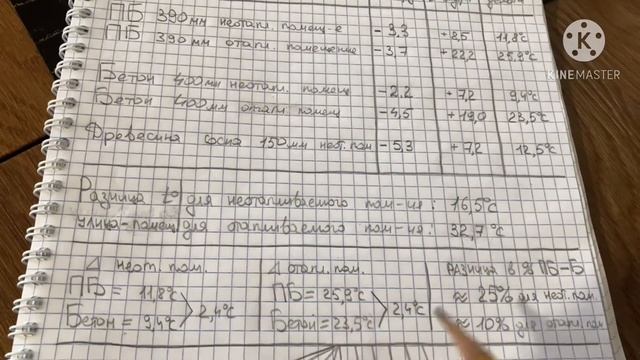 ПБ 390мм неотапл. помещ-е -9,3 +2,5 11,8°с
ПБ 390мм отапл. помещение -3,7 +22,2 25,9°с
Бетон 400мм неотапл. помещ -2,2 +7,2 9,4°с
Бетон 400мм отапл. помещ -4,5 +19,0 23,5°с
Древесина сосна 150мм неот. пом -5,3 +7,2 12,5°с
Разница t° для неотапливаемого пом-ия: 16,5°с
улица-помещ для отапливаемого пом-ия: 32,7°с
Δ неот. пом.
ПБ = 11,8°с
Бетон = 9,4°с
2,4°с
Δ отапл. пом.
ПБ = 25,9°с
Бетон = 23,5°с
2,4°с
Разница в % ПБ-Б
≈ 25% для неот. пом.
≈ 10% для отапл. пом
KINEMASTER